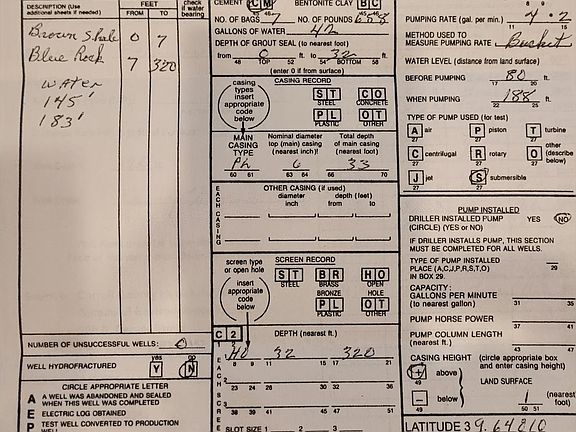 DESCRIPTION (Use additional sheets if needed)
FEET
FROM TO
check if water bearing
Brown Shale 0 7
Blue Rock 7 320
water
145'
183'
NUMBER OF UNSUCCESSFUL WELLS: 0
WELL HYDROFRACTURED
yes
Y N
CIRCLE APPROPRIATE LETTER
A A WELL WAS ABANDONED AND SEALED WHEN THIS WELL WAS COMPLETED
E ELECTRIC LOG OBTAINED
P TEST WELL CONVERTED TO PRODUCTION WELL
CEMENT CM BENTONITE CLAY BC
NO. OF BAGS 7 NO. OF POUNDS
GALLONS OF WATER 42
DEPTH OF GROUT SEAL (to nearest foot)
from 0 ft. to 32 ft.
48 TOP 52 54 BOTTOM 58
(enter 0 if from surface)
casing types insert appropriate code below
CASING RECORD
ST CO
STEEL CONCRETE
PL OT
PLASTIC OTHER
MAIN CASING TYPE
Nominal diameter top (main) casing (nearest inch)!
Total depth of main casing (nearest foot)
PL 6 33
60 61 63 64 66 70
EACH CASING
OTHER CASING (if used)
diameter inch
depth (feet) from to
screen type or open hole
insert appropriate code below
SCREEN RECORD
ST BR HO
STEEL BRASS BRONZE OPEN HOLE
PL OT
PLASTIC OTHER
C 2
DEPTH (nearest ft.)
HO 32 320
8 9 11 15 17 21
23 24 26 30 32 36
38 39 41 45 47 51
SLOT SIZE 1 2 3
PUMPING RATE (gal. per min.) 4.2
METHOD USED TO MEASURE PUMPING RATE Bucket
WATER LEVEL (distance from land surface)
BEFORE PUMPING 80 ft.
17 20
WHEN PUMPING 188 ft.
22 25
TYPE OF PUMP USED (for test)
A air P piston T turbine
27 27 27
C centrifugal R rotary O other (describe below)
27 27 27
J jet S submersible
27 27
PUMP INSTALLED
DRILLER INSTALLED PUMP YES NO
(CIRCLE) (YES or NO)
IF DRILLER INSTALLS PUMP, THIS SECTION MUST BE COMPLETED FOR ALL WELLS.
TYPE OF PUMP INSTALLED
PLACE (A,C,J,P,R,S,T,O)
IN BOX 29.
29
CAPACITY:
GALLONS PER MINUTE (to nearest gallon)
31 35
PUMP HORSE POWER
37 41
PUMP COLUMN LENGTH (nearest ft.)
43 47
CASING HEIGHT (circle appropriate box and enter casing height)
+ above
49
LAND SURFACE
- below
49
1 (nearest foot)
50 51
LATITUDE 39.64810